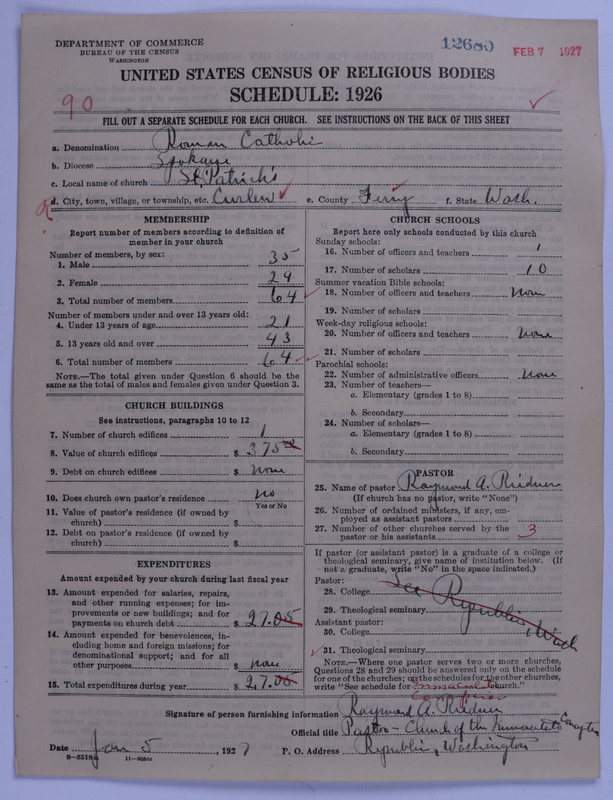 DEPARTMENT OF COMMERCE
BUREAU OF THE CENSUS
WASHINGTON
FEB 7 1927
UNITED STATES CENSUS OF RELIGIOUS BODIES
SCHEDULE: 1926
90
FILL OUT A SEPARATE SCHEDULE FOR EACH CHURCH. SEE INSTRUCTIONS ON THE BACK OF THIS SHEET
a. Denomination Roman Catholic
b. Diocese Spokane
c. Local name of church St. Patrick's
d. City, town, village, or township, etc. Curlew e. County Ferry f. State Wash.
MEMBERSHIP
Report number of members according to definition of member in your church
Number of members, by sex:
1. Male 35
2. Female 29
3. Total number of members 64
Number of members under and over 13 years old:
4. Under 13 years of age 21
5. 13 years old and over 43
6. Total number of members 64
NOTE.—The total given under Question 6 should be the
same as the total of males and females given under Question 3.
CHURCH BUILDINGS
See instructions, paragraphs 10 to 12
7. Number of church edifices 1
8. Value of church edifices $ 375
9. Debt on church edifices $ none
10. Does church own pastor's residence no
Yes or No
11. Value of pastor's residence (if owned by
church) $
12. Debt on pastor's residence (if owned by
church) $
EXPENDITURES
Amount expended by your church during last fiscal year
13. Amount expended for salaries, repairs,
and other running expenses; for im-
provements or new buildings; and for
payments on church debt $ 27.05
14. Amount expended for benevolences, in-
cluding home and foreign missions; for
denominational support; and for all
other purposes $ none
15. Total expenditures during year $ 27.05
CHURCH SCHOOLS
Report here only schools conducted by this church
Sunday schools:
16. Number of officers and teachers 1
17. Number of scholars 10
Summer vacation Bible schools:
18. Number of officers and teachers none
19. Number of scholars
Week-day religious schools:
20. Number of officers and teachers none
21. Number of scholars
Parochial schools:
22. Number of administrative officers none
23. Number of teachers—
a. Elementary (grades 1 to 8)
b. Secondary
24. Number of scholars—
a. Elementary (grades 1 to 8)
b. Secondary
PASTOR
25. Name of pastor Raymond A.
(If church has no pastor, write "None")
26. Number of ordained ministers, if any, em-
ployed as assistant pastors
27. Number of other churches served by the
pastor or his assistants 3
If pastor (or assistant pastor) is a graduate of a college or
theological seminary, give name of institution below. (If
not a graduate, write "No" in the space indicated.)
Pastor:
28. College
See Republic, Wash
29. Theological seminary
Assistant pastor:
30. College
31. Theological seminary
NOTE.—Where one pastor serves two or more churches,
Questions 28 and 29 should be answered only on the schedule
for one of the churches; on the schedules for the other churches,
write "See schedule for Immaculate Conception church."
Signature of person furnishing information Raymond A.
Official title Pastor - Church of the Immaculate Conception
Date Jan 5, 1927 P. O. Address Republic, Washington